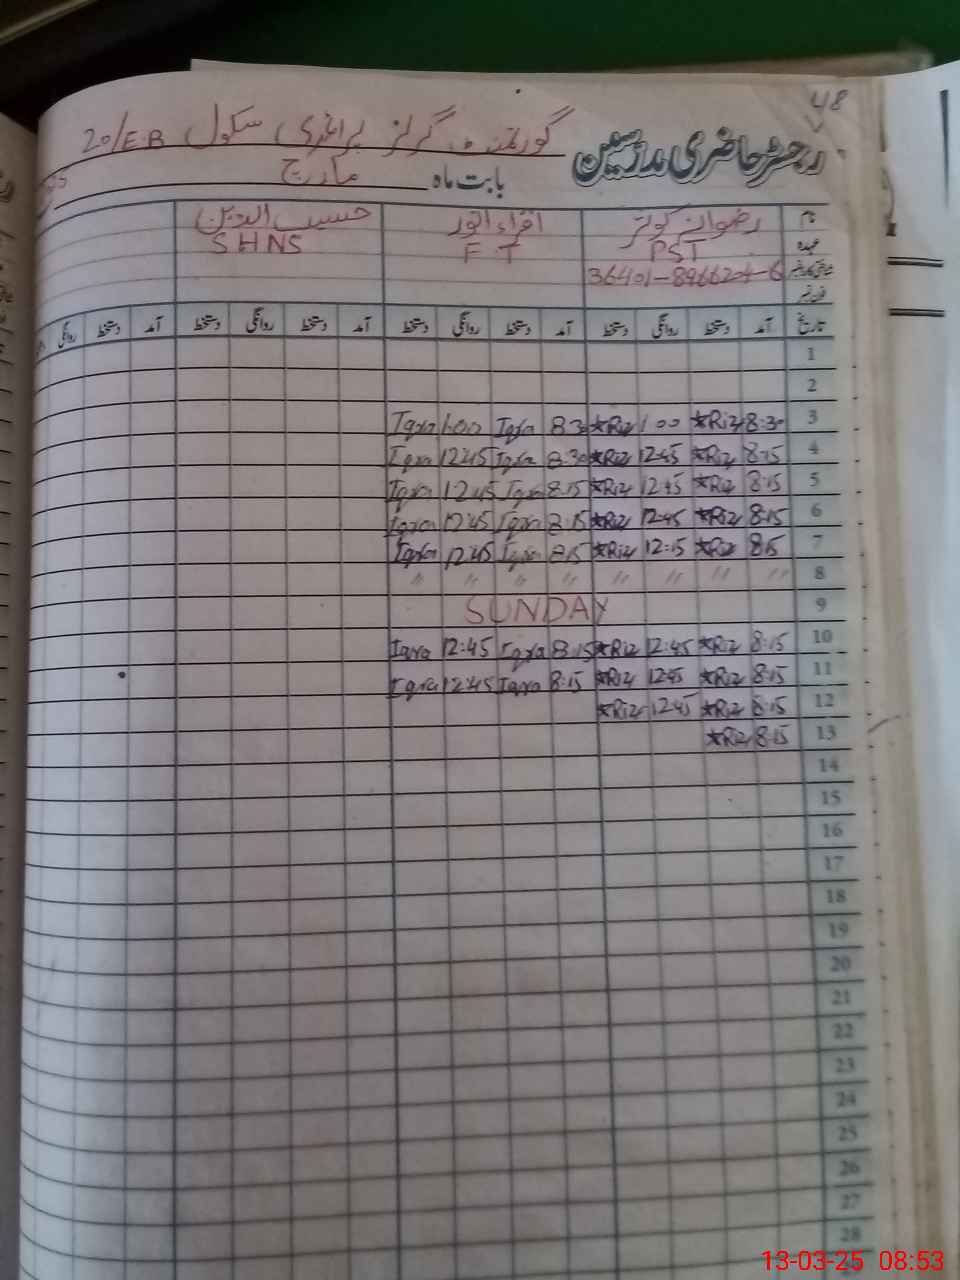 48
رجسٹر حاضری مدرسین گورنمنٹ گرلز پرائمری سکول 20/E.B
بابت ماہ مارچ
نام رضوانہ کوثر اقراء انور حسیب الدین
عہدہ PST F.T SHNS
شناختی کارڈ نمبر 36401-8966204-6
فون نمبر
تاریخ آمد دستخط روانگی دستخط آمد دستخط روانگی دستخط آمد دستخط روانگی دستخط آمد دستخط روانگی
1
2
3 8:30 *Riz 1:00 *Riz 8:30 Iqra 1:00 Iqra
4 8:15 *Riz 12:45 *Riz 8:30 Iqra 12:45 Iqra
5 8:15 *Riz 12:45 *Riz 8:15 Iqra 12:45 Iqra
6 8:15 *Riz 12:45 *Riz 8:15 Iqra 12:45 Iqra
7 8:15 *Riz 12:15 *Riz 8:15 Iqra 12:45 Iqra
8 " " " " " " " "
9 SUNDAY
10 8:15 *Riz 12:45 *Riz 8:15 Iqra 12:45 Iqra
11 8:15 *Riz 12:45 *Riz 8:15 Iqra 12:45 Iqra
12 8:15 *Riz 12:45 *Riz
13 8:15 *Riz
14
15
16
17
18
19
20
21
22
23
24
25
26
27
28
13-03-25 08:53